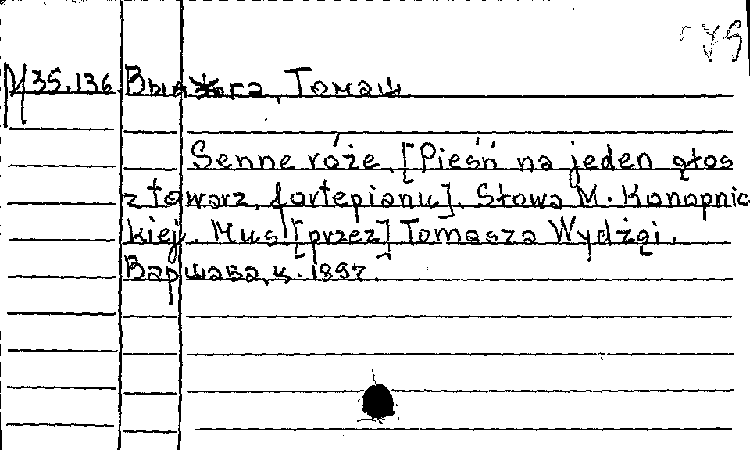 М 35.136 Выджга, Томаш
Senne róże. [Pieśń na jeden głos
z towarz. fortepianu]. Słowa M. Konopnic
kiej. Mus. [przez] Tomasza Wydżgi.
Варшава, ц. 1897.